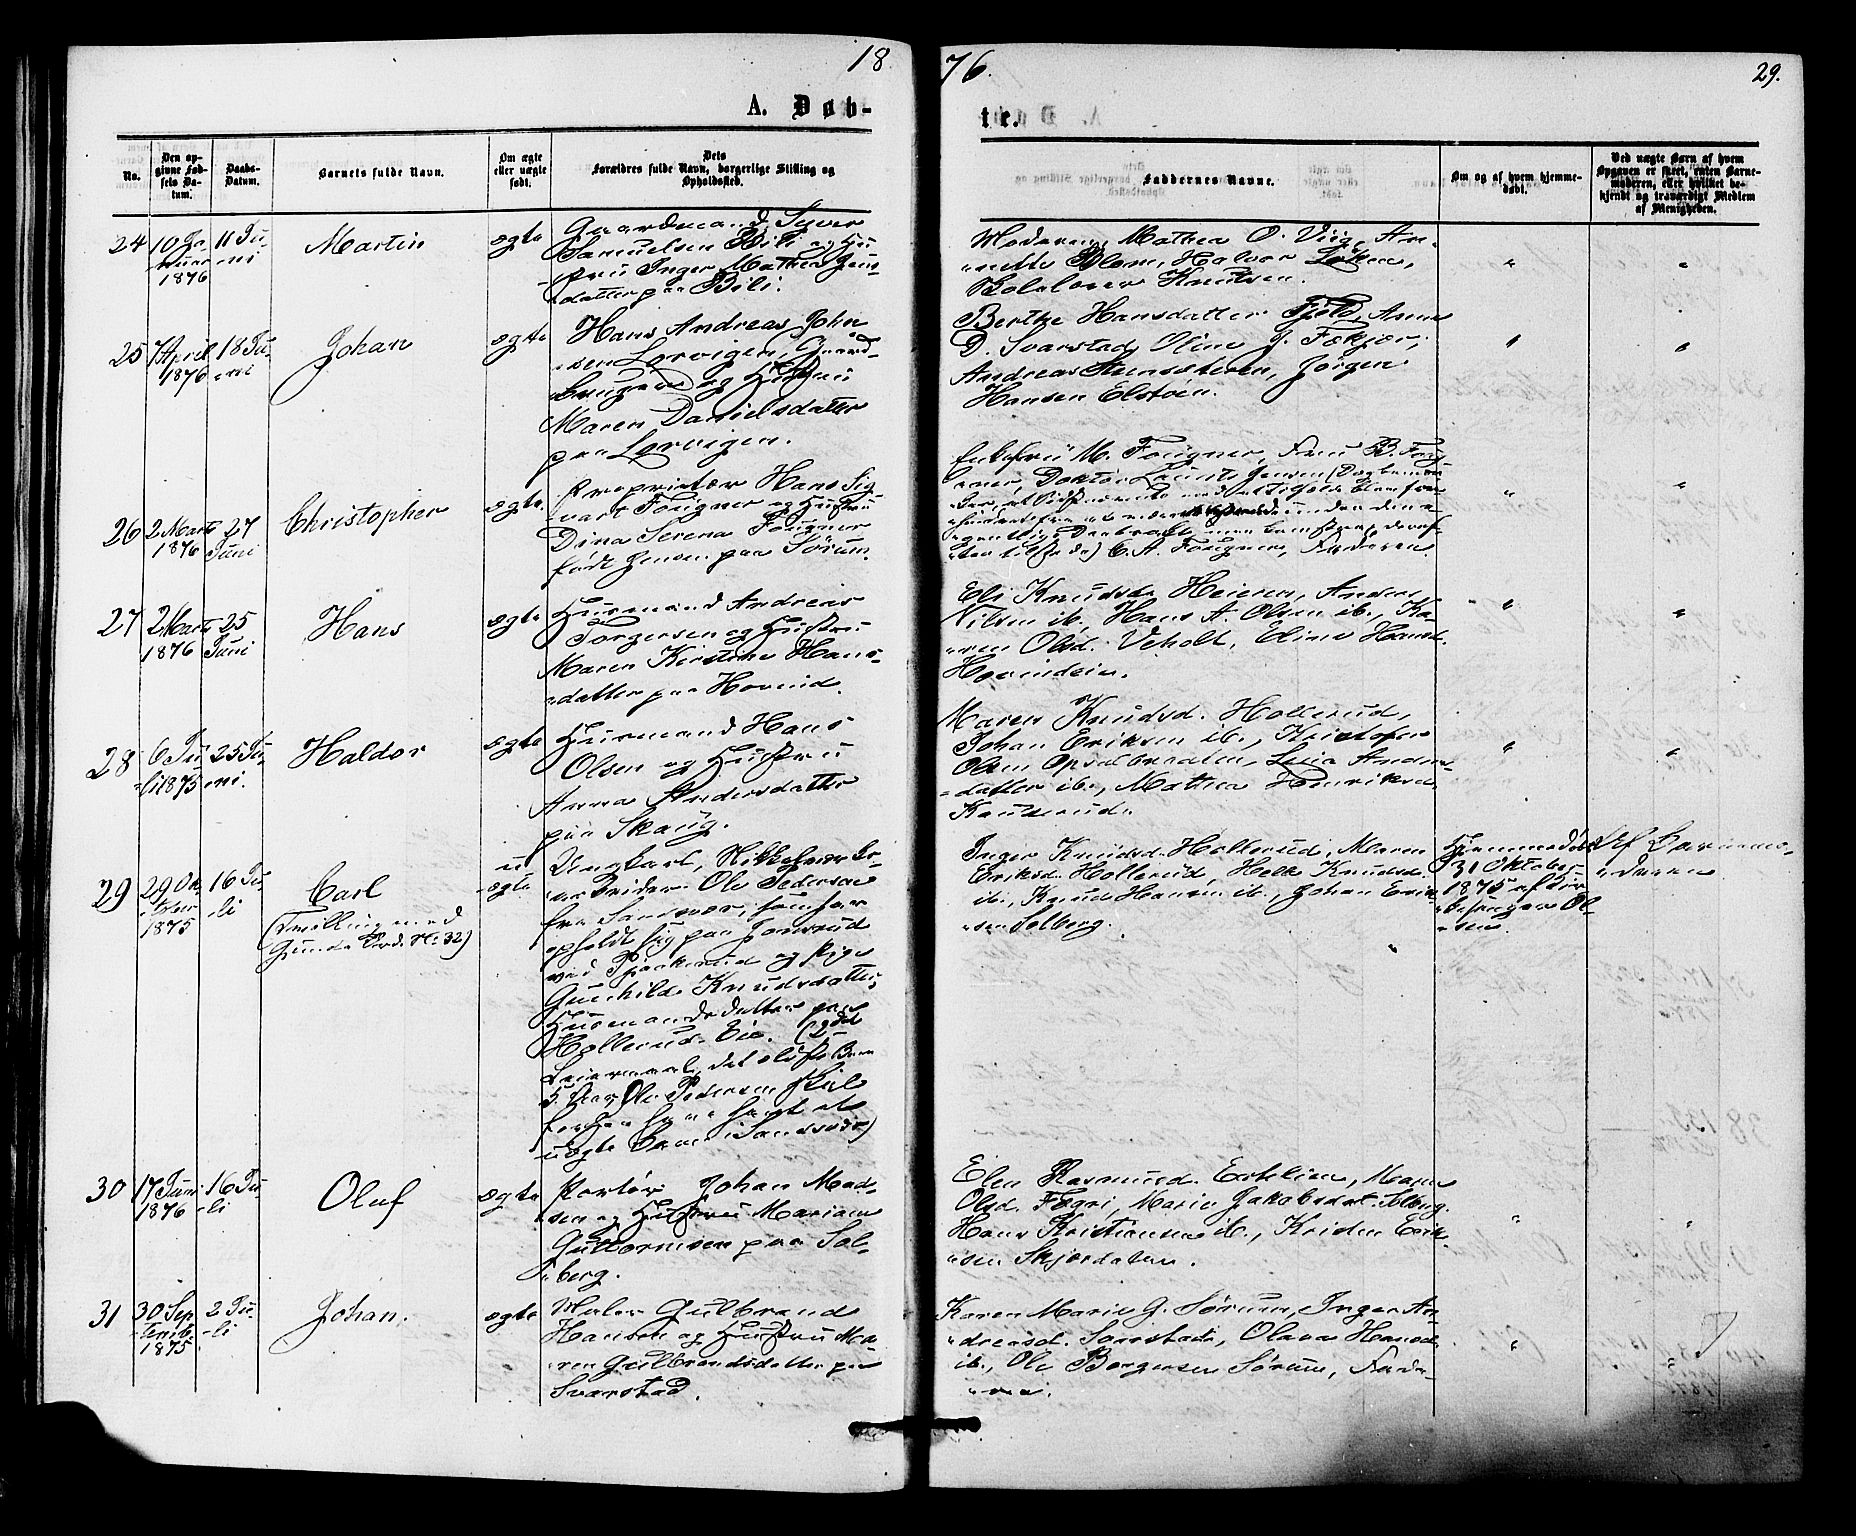 1876.
29.
A. Døb-
te.
No.
Den op-
givne Fød-
sels Da-
tum.
Daabs-
Datum.
Barnets fulde Navn.
Om ægte
eller uægte
født.
Dets
Forældres fulde Navn, borgerlige Stilling og
Opholdssted.
Faddernes Navne.
Om og af hvem hjemme-
døbt.
Ved uægte Børn af hvem
Opgaven er skeet, enten Barne-
moderen, eller hvilket be-
kjendt og troværdigt Medlem
af Menigheden.
24
10 Ja-
nuar
1876
11 Ju-
ni
Martin
ægte
Gaardmand Syver
Samuelsen Bili og Hu-
stru Inger Mathea
datter paa Bili.
Moderen, Mathea O. Viig, An-
nette Blom, Halvor Løken,
Knutsen.
25
7 April
1876
18 Ju-
ni
Johan
ægte
Hans Andreas John
sen Lorvigen, Gaard-
bruger og Hustru
Maren Danielsdatter
paa Lorvigen.
Berthe Hansdatter Fjeld, Anne
D. Svarstad, Oline J. Fækjær,
Andreas Steensteren, Jørgen
Hansen Elstøen.
26
2 Marts
1876
27
Juni
Christopher
ægte
Proprietær Hans Sig-
vart Fougner og Hustru
Dina Serena Fougner
født Jensen paa Sørum.
Enkefru M. Fougner, Fru B. Foug-
ner, Doktor Laurits Jensen
C. A. Fougner, Faderen.
27
2 Marts
1876
25
Juni
Hans
ægte
Husmand Andreas
Torgersen og Hustru
Maren Kirstine Hans-
datter paa Hovind.
Eli Knudsd. Heieren, Anders
Nilsen ib., Hans A. Olsen ib., Ka-
ren Olsd. Veholt, Eline Hansd.
Hovindeie.
28
6 Ju-
li 1875
25 Ju-
ni.
Haldor
ægte
Husmand Hans
Olsen og Hustru
Anna Andersdatter
paa Skaug.
Maren Knudsd. Hollerud,
Johan Eriksen ib., Kristofer
Olsen Opsalbraaten, Anders-
datter ib., Mathea Henriksd.
29
29 Ok-
tober
1875
16 Ju-
li
Carl
(Tvilling med
Gunda No. 32)
u-
ægte
Ungkarl,
Ole Pedersen
fra Sandsvær, som har
opholdt sig paa Jonsrud
ved Tjøckerud og Pige
Gunhild Knudsdatter,
Husmandsdatter paa
Hollerud Eie. (2det
Leiermaal, det ældste Barn
5 Aar, Ole Pedersen skal
før have havt et
uægte Barn i Sandsvær)
Inger Knudsd. Hollerud, Maren
Eriksd. Hollerud, Helle Knudsd.
ib., Knud Hansen ib., Johan Erik-
sen Solberg.
Hjemmedøbt
31 Oktober
1875 af Kir-
kesanger Ol-
sen.
Af Barnemo-
deren
30
17 Juni
1876
16 Ju-
li
Oluf
ægte
Johan Mad-
sen og Hustru Mariane
Gulbrandsen paa Sol-
berg.
Elen Rasmusd. Maren
Olsd. Fegri, Marie Jakobsdat. Solberg,
Hans Kristiansen ib., Kristen Erik-
sen Skjørdalen.
31
30 Sep-
temb.
1875
2 Ju-
li
Johan.
ægte
Maler Gulbrand
Hansen og Hustru Ma-
ren Gulbrandsdatter paa
Svarstad.
Karen Marie G. Sørum, Inger An-
dreasd. Svarstad, Olava Hansd.
ib., Ole Borgersen Sørum, Fade-
ren.